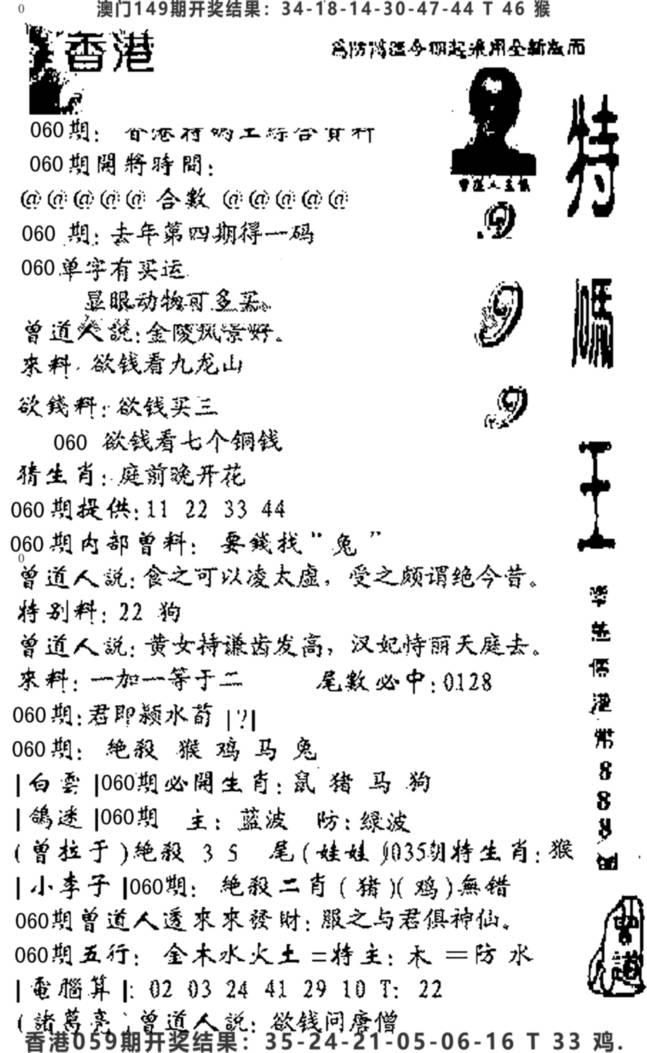 澳门149期开奖结果：34-18-14-30-47-44 T 46 猴
香港
特
碼
王
060期：香港特码王综合資料
060期開將時間：
@@@@@ 合數 @@@@@
060 期：去年第四期得一码
060单字有买运
显眼动物可多买。
曾道人説：金陵风景好。
來料．欲钱看九龙山
欲錢料：欲钱买三
060 欲钱看七个铜钱
猜生肖：庭前晚开花
060期提供：11 22 33 44
060期内部曾料： 要錢找“兔”
曾道人説：食之可以凌太虚，受之颇谓绝今昔。
特别料：22 狗
曾道人説：黄女持谦齿发高，汉妃恃丽天庭去。
來料：一加一等于二 尾數必中：0128
060期：君即颍水荀 |?|
060期： 絶殺 猴 鸡 马 兔
|白雲|060期必開生肖：鼠 猪 马 狗
|鴿迷|060期 主：蓝波 防：緑波
(曾拉于)絶殺 3 5 尾(娃娃)035期特生肖：猴
|小李子|060期： 絶殺二肖(猪)(鸡)無错
060期曾道人透來來發財：服之与君俱神仙。
060期五行： 金木水火土=特主：木 =防 水
|電腦算|：02 03 24 41 29 10 T： 22
(諸葛亮)曾道人説：欲钱问唐僧
香港059期开奖结果：35-24-21-05-06-16 T 33 鸡.
888